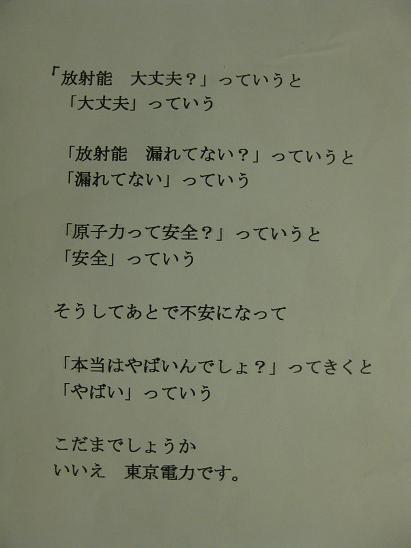 「放射能　大丈夫？」っていうと
「大丈夫」っていう
「放射能　漏れてない？」っていうと
「漏れてない」っていう
「原子力って安全？」っていうと
「安全」っていう
そうしてあとで不安になって
「本当はやばいんでしょ？」ってきくと
「やばい」っていう
こだまでしょうか
いいえ　東京電力です。